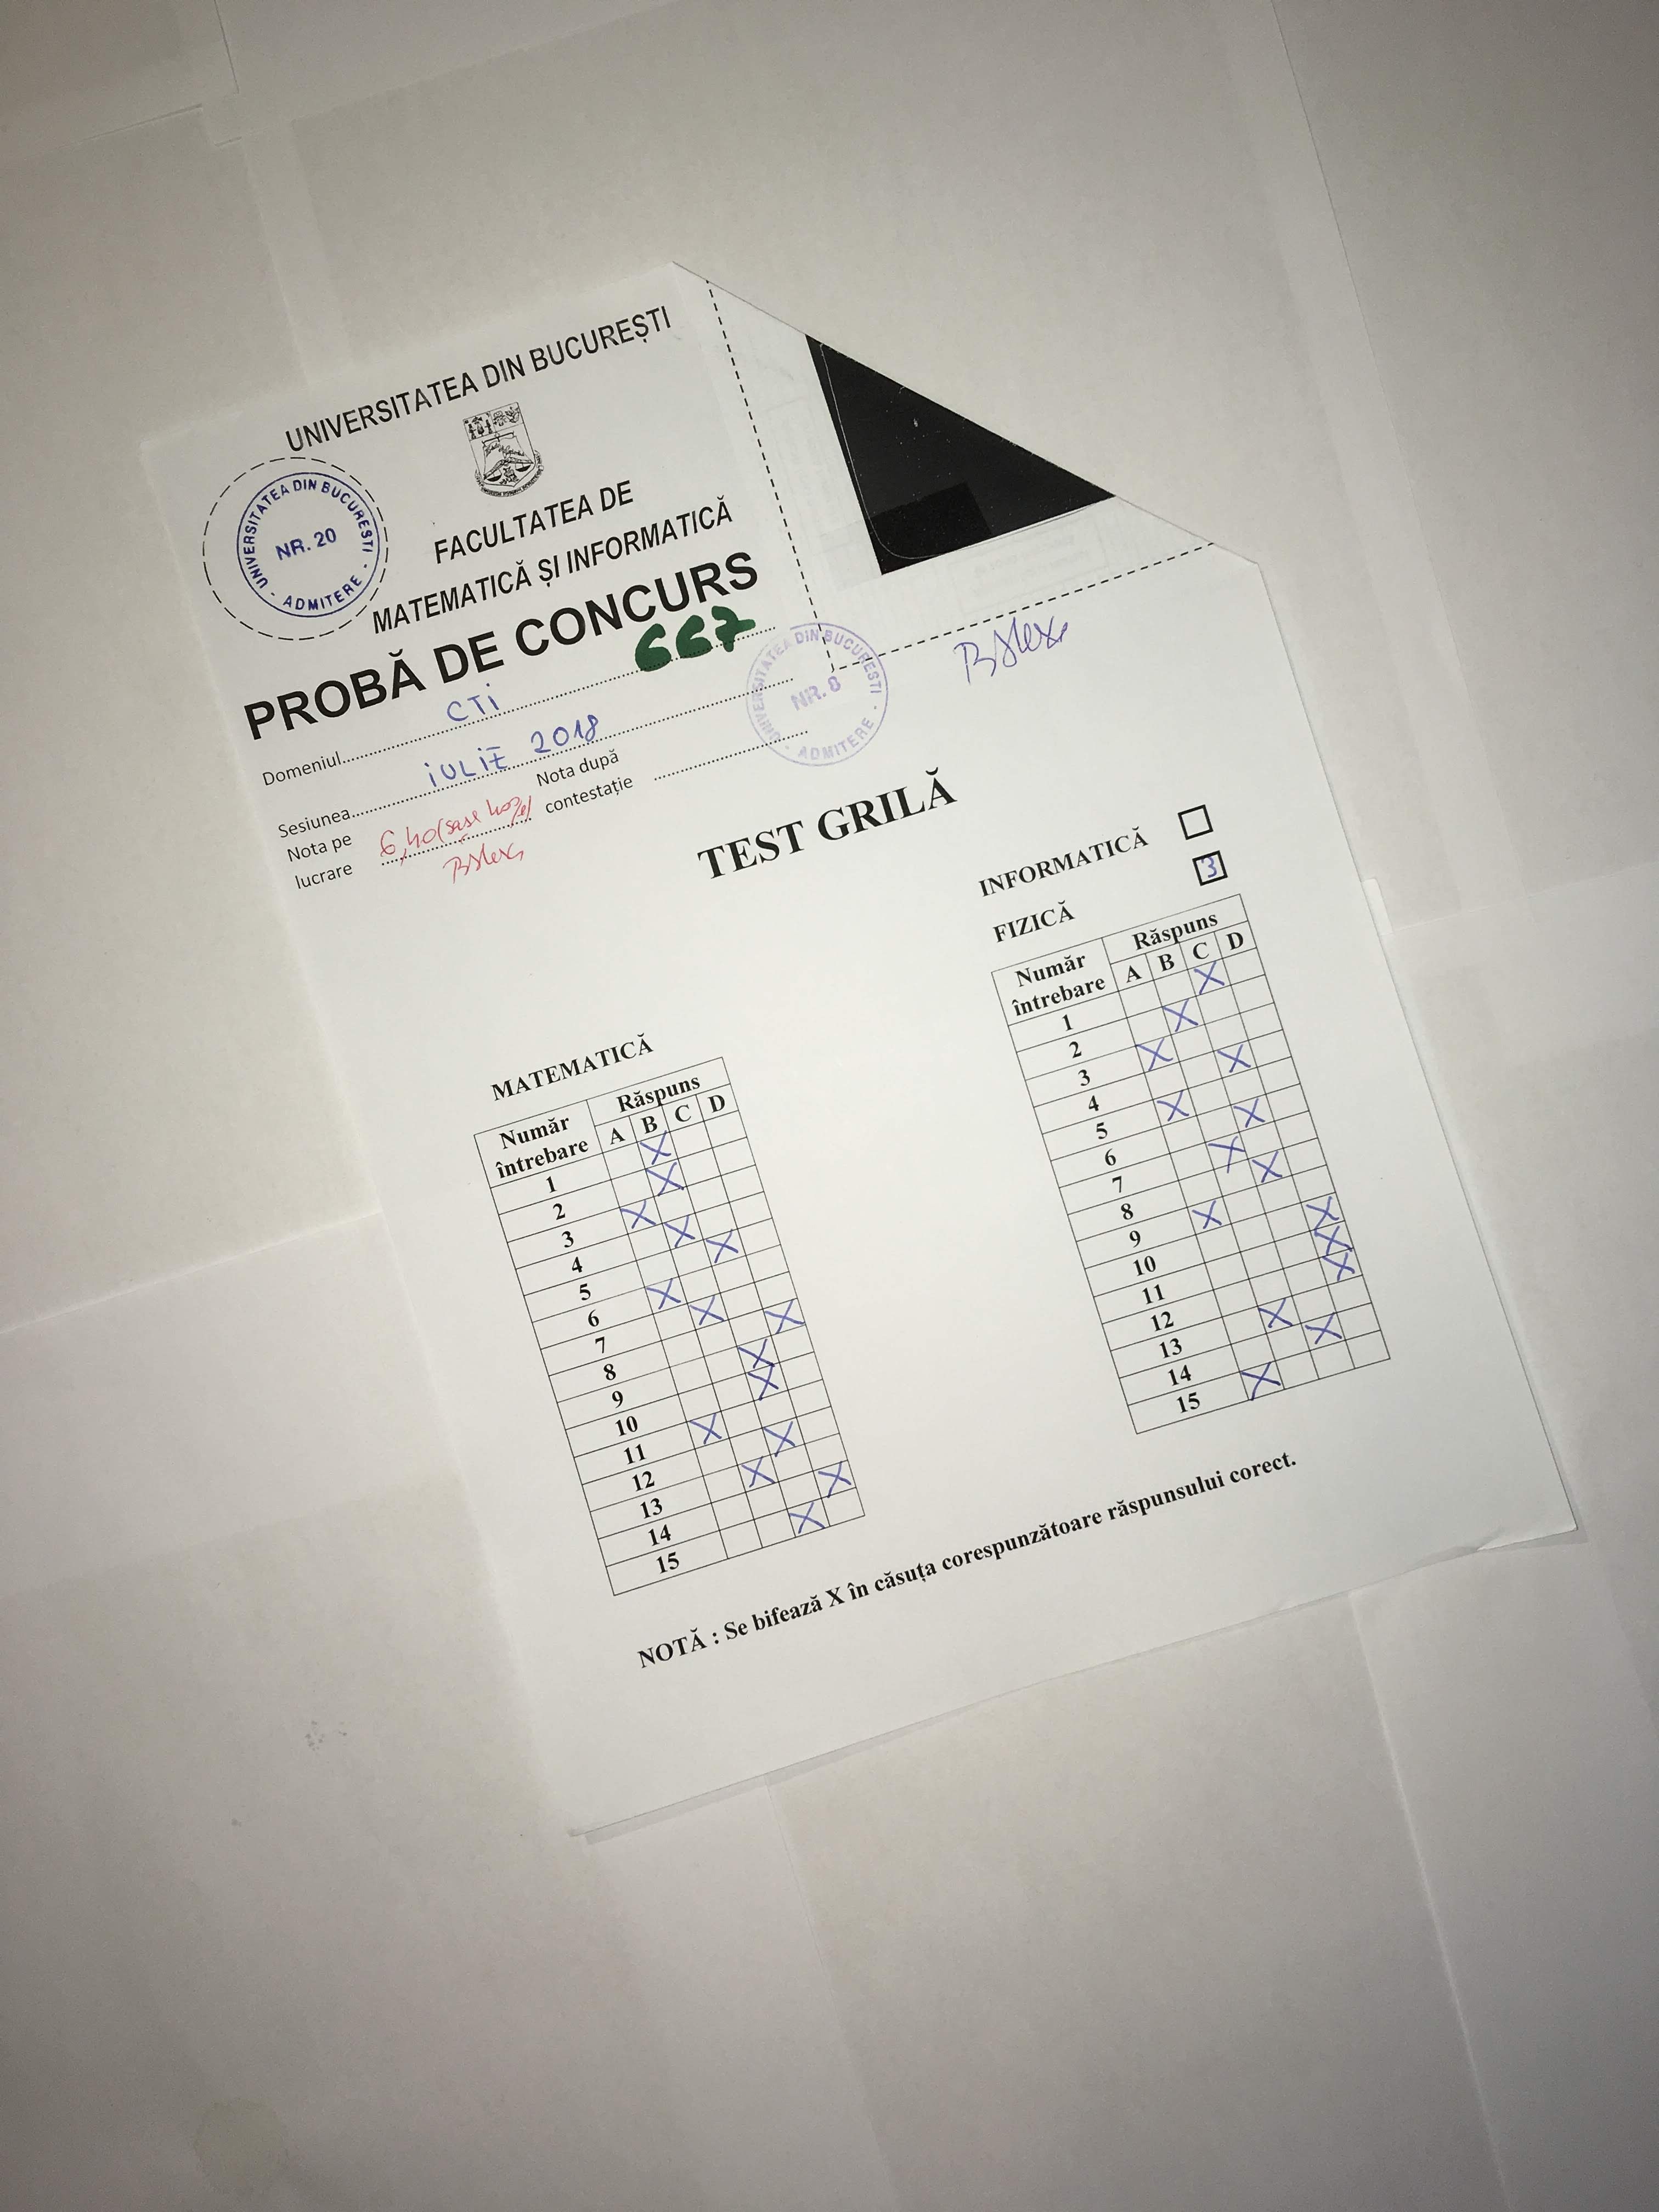 UNIVERSITATEA DIN BUCUREȘTI
FACULTATEA DE
MATEMATICĂ ȘI INFORMATICĂ
UNIVERSITATEA DIN BUCURESTI
NR. 20
- ADMITERE -
PROBĂ DE CONCURS
667
Domeniul CTi
Sesiunea iULIE 2018
Nota pe lucrare 6,40 (șase
Nota după contestație
UNIVERSITATEA DIN BUCURESTI
NR. 8
- ADMITERE -
TEST GRILĂ
INFORMATICĂ
FIZICĂ 3
MATEMATICĂ
Număr întrebare Răspuns
A B C D
1 X
2 X
3 X
4 X
5 X
6 X
7 X
8 X
9 X
10 X
11 X
12 X
13 X
14 X
15 X
Număr întrebare Răspuns
A B C D
1 X
2 X
3 X
4 X
5 X
6 X
7 X
8 X
9 X
10 X
11 X
12 X
13 X
14 X
15 X
NOTĂ : Se bifează X în căsuța corespunzătoare răspunsului corect.